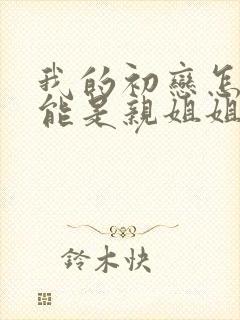 我的初戀怎
能是親姐姐
鈴木快